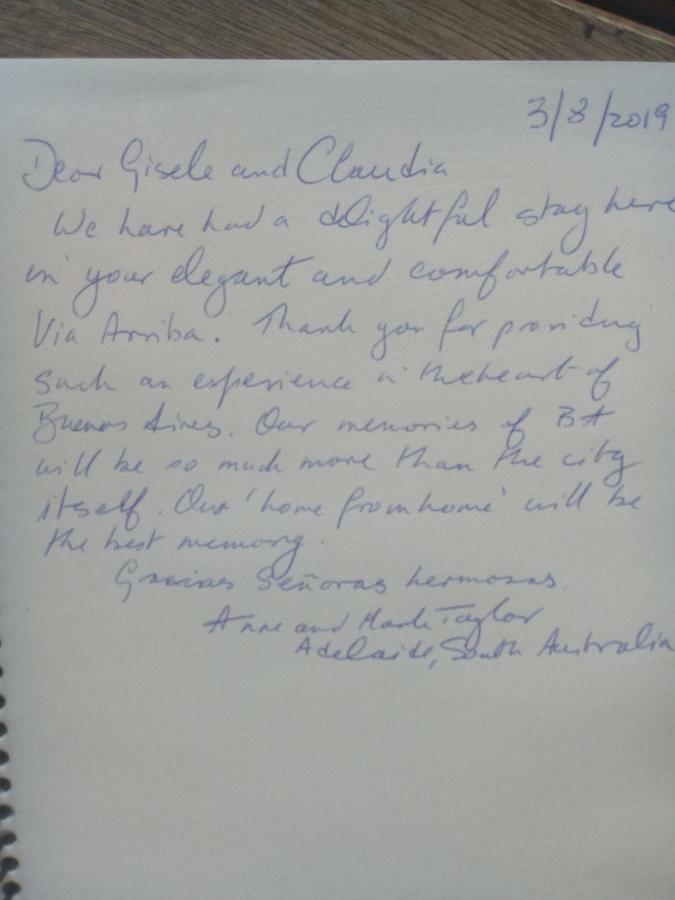 3/8/2019
Dear Gisele and Claudia
We have had a delightful stay here
in your elegant and comfortable
Via Arriba. Thank you for providing
such an experience in the heart of
Buenos Aires. Our memories of BA
will be so much more than the city
itself. Our 'home from home' will be
the best memory.
Gracias Señoras hermosas.
Anne and Mark Taylor
Adelaide, South Australia